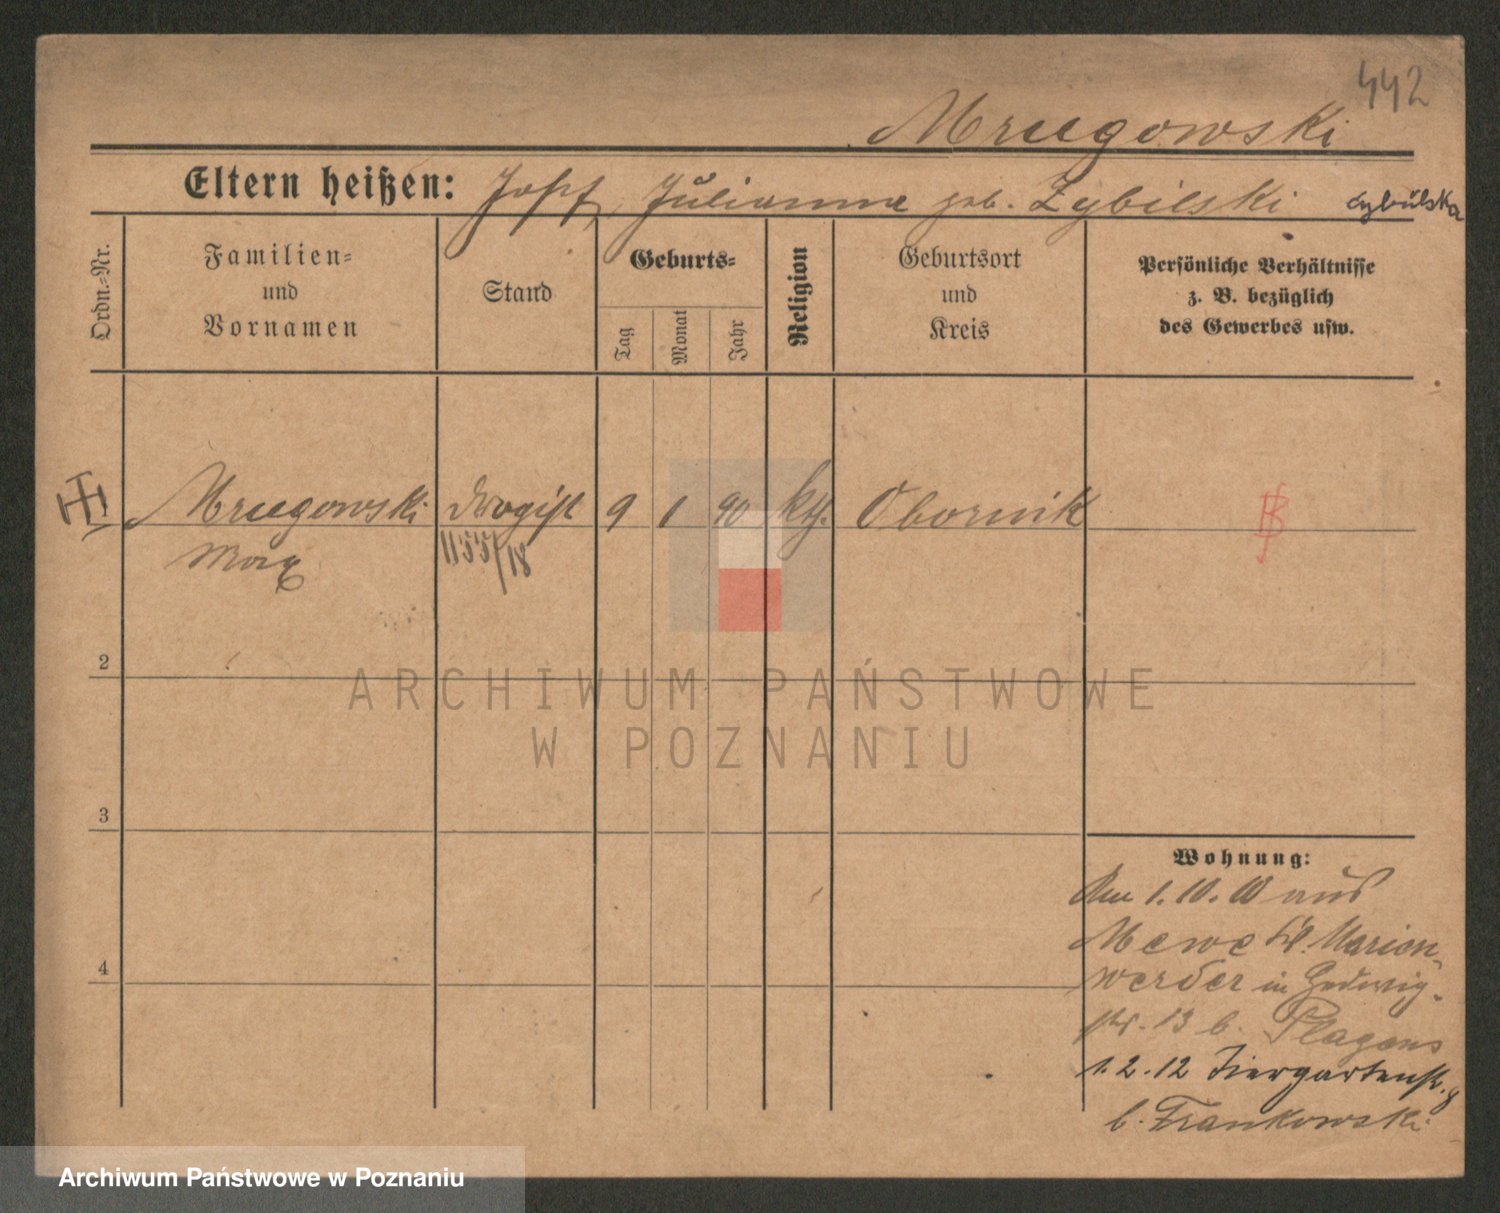 442
Mrugowski
Eltern heißen: Josef, Julianna geb. Zybilski Cybulska
Ordn.-Nr.
Familien-
und
Vornamen
Stand
Geburts-
Tag
Monat
Jahr
Religion
Geburtsort
und
Kreis
Persönliche Verhältnisse
z. B. bezüglich
des Gewerbes usw.
Mrugowski Drogist 9 1 90 kth. Obornik
Max
1155/18
2
3
4
ARCHIWUM PAŃSTWOWE
W POZNANIU
Wohnung:
Am 1.10.10 aus
Mewe Kr. Marien-
werder in Hedwig-
str. 13 b. Plagens
1.2.12 Tiergartenstr. 8
b. Frankowski
Archiwum Państwowe w Poznaniu